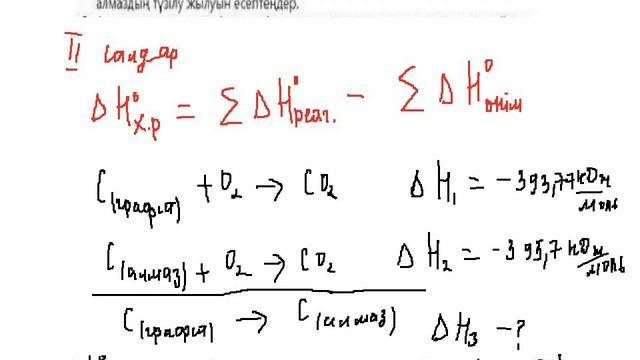 алмаздың түзілу жылуын есептеңдер.
II салдар
ΔH°х.р = ΣΔH°реаг. − ΣΔH°өнім
C(графит) + O₂ → CO₂ ΔH₁ = −393,77 кДж/моль
C(алмаз) + O₂ → CO₂ ΔH₂ = −395,7 кДж/моль
C(графит) → C(алмаз) ΔH₃ − ?